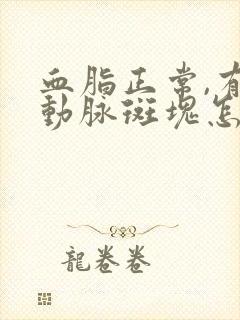 血脂正常,有
動脉斑塊怎
龍卷卷